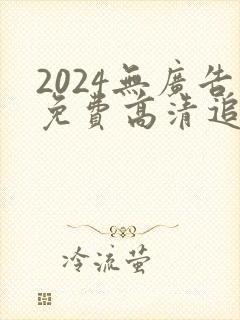 2024無廣告
免費高清追
冷流萤